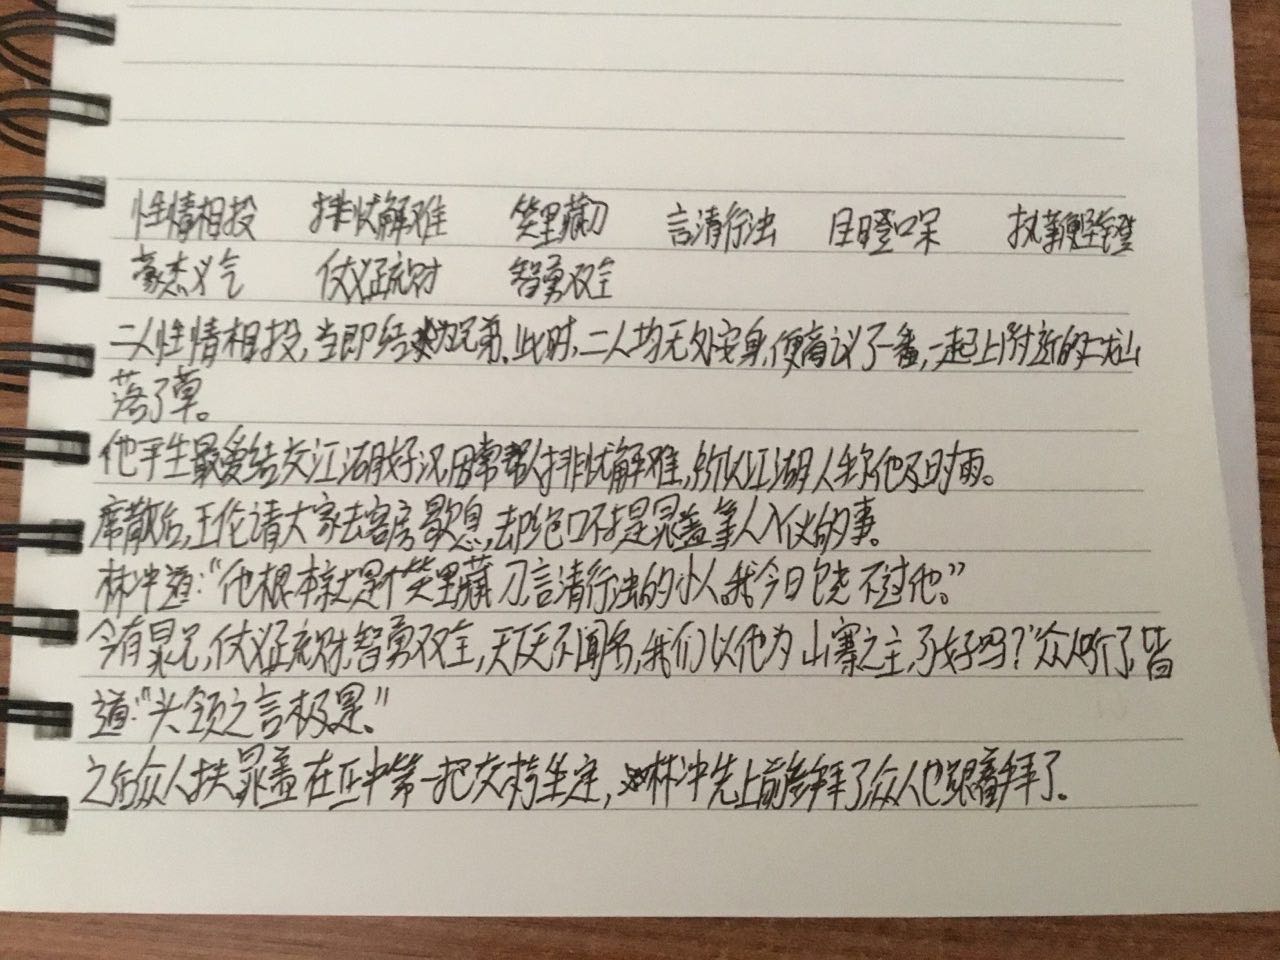 性情相投 排忧解难 笑里藏刀 言清行浊 目瞪口呆 执鞭坠镫
豪杰义气 仗义疏财 智勇双全
二人性情相投,当即结为兄弟。此时,二人均无处安身,便商议了一番,一起上附近的二龙山
落了草。
他平生最爱结交江湖好汉,因常帮人排忧解难,所以江湖人称他及时雨。
席散后,王伦请大家去客房歇息,却绝口不提晁盖等人入伙的事。
林冲道:“他根本就是个笑里藏刀,言清行浊的小人。我今日饶不过他。”
今有晁兄,仗义疏财,智勇双全,天下无不闻名,我们以他为山寨之主,可好吗?”众人听了,皆
道:“头领之言极是。”
之后众人扶晁盖在正中第一把交椅坐定,林冲先上前参拜了,众人也跟着拜了。